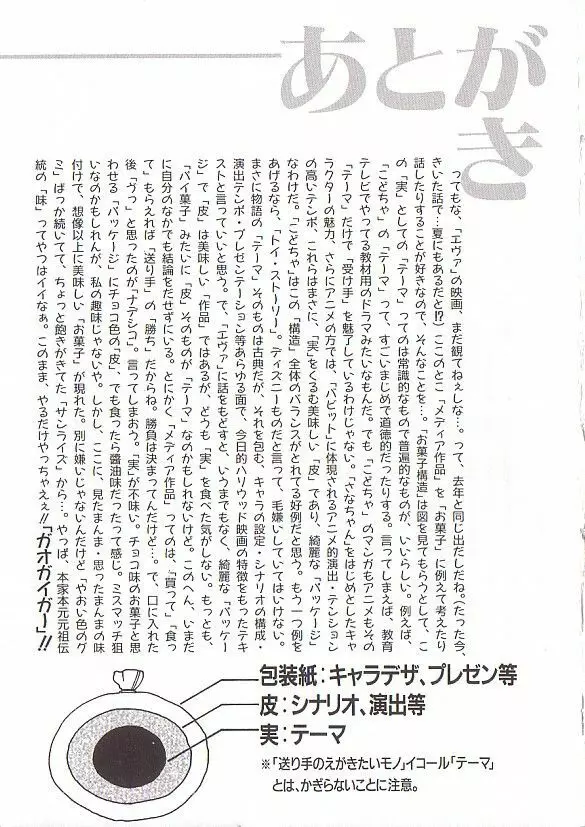 あとがき
ってもな、「エヴァ」の映画、まだ観てねぇしな…。って、去年と同じ出だしだね。(たった今、
きいた話で…夏にもあるだと!?)ここのとこ「メディア作品」を「お菓子」に例えて考えたり
話したりすることが好きなので、そんなことを…。「お菓子構造」は図を見てもらうとして、こ
の「実」としての「テーマ」ってのは常識的なもので普遍的なものが、いいらしい。例えば、
「こどちゃ」の「テーマ」って、すごいまじめで道徳的だったりする。言ってしまえば、教育
テレビでやってる教材用のドラマみたいなもんだ。でも「こどちゃ」のマンガもアニメもその
「テーマ」だけで「受け手」を魅了しているわけじゃない。「さなちゃん」をはじめとしたキャ
ラクターの魅力、さらにアニメの方では、「バビット」に体現されるアニメ的演出・テンション
の高いテンポ、これらはまさに、「実」をくるむ美味しい「皮」であり、綺麗な「パッケージ」
なわけだ。「こどちゃ」はこの「構造」全体のバランスがとれてる好例だと思う。もう一つ例を
あげるなら、「トイ・ストーリー」。ディズニーものだと言って、毛嫌いしていてはいけない。
まさに物語の「テーマ」そのものは古典だが、それを包む、キャラの設定・シナリオの構成・
演出テンポ・プレゼンテーション等あらゆる面で、今日的ハリウッド映画の特徴をもったテキ
ストと言っていいと思う。で、「エヴァ」に話をもどすと、いうまでもなく、綺麗な「パッケー
ジ」で「皮」は美味しい「作品」ではあるが、どうも「実」を食べた気がしない。もっとも、
「パイ菓子」みたいに「皮」そのものが「テーマ」なのかもしれないけど。このへん、いまだ
に自分のなかでも結論をだせずにいる。とにかく「メディア作品」ってのは、「買って」「食っ
て」もらえれば「送り手」の「勝ち」だからね。勝負は決まってんだけど…。で、口に入れた
後「ヴっ」と思ったのが「ナデシコ」。言ってしまおう。「実」が不味い。チョコ味のお菓子と思
わせる「パッケージ」にチョコ色の「皮」、でも食ったら醤油味だったって感じ。ミスマッチ狙
いなのかもしれんが、私の趣味じゃないや。しかし、ここに、見たまんま・思ったまんまの味
付けで、想像以上に美味しい「お菓子」が現れた。別に嫌いじゃないんだけど「やおい色のグ
ミ」ばっか続いてて、ちょっと飽きがきてた「サンライズ」から…。やっぱ、本家本元元祖伝
統の「味」ってやつはイイなぁ。このまま、やるだけやっちゃえぇ!!「ガオガイガー」!!
包装紙:キャラデザ、プレゼン等
皮:シナリオ、演出等
実:テーマ
※「送り手のえがきたいモノ」イコール「テーマ」
とは、かぎらないことに注意。